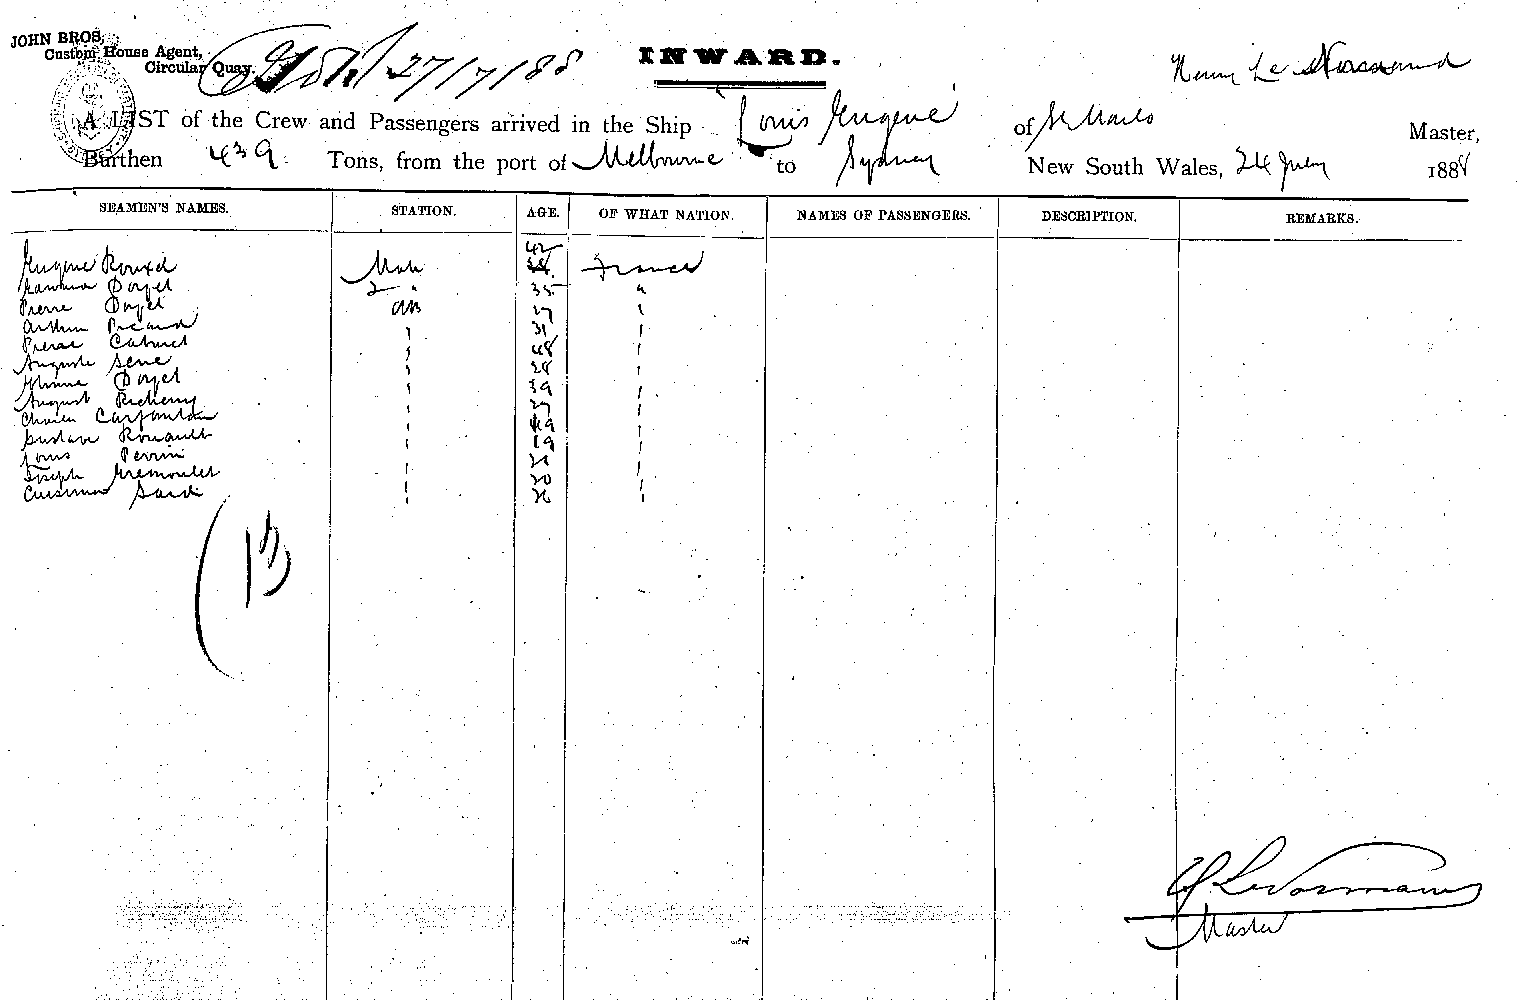 JOHN BROS,
Custom House Agent,
Circular Quay.
27/7/88
INWARD.
Henry Le Normand
A LIST of the Crew and Passengers arrived in the Ship "Louis Eugene" of St Malo Master,
Burthen 439 Tons, from the port of Melbourne to Sydney New South Wales, 24 July 1888
SEAMEN'S NAMES. STATION. AGE. OF WHAT NATION. NAMES OF PASSENGERS. DESCRIPTION. REMARKS.
42
Eugene Rouxel Mate France
Doyet 2 " 35 "
Pierre Doyet AB 27 "
Arthur Picaud " 31 "
Pierre " 48 "
Auguste Sene " 28 "
Doyet " 39 "
August " 27 "
Charles Carfantan " 49 "
Gustave Rouault " 19 "
Louis Perrin " "
Joseph " 20 "
" "
(13)
Le Normand
Master